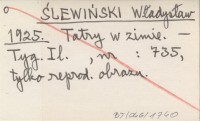 ŚLEWIŃSKI Władysław
1925. Tatry w zimie. —
Tyg. Il. , nr : 735,
tylko reprod. obrazu.